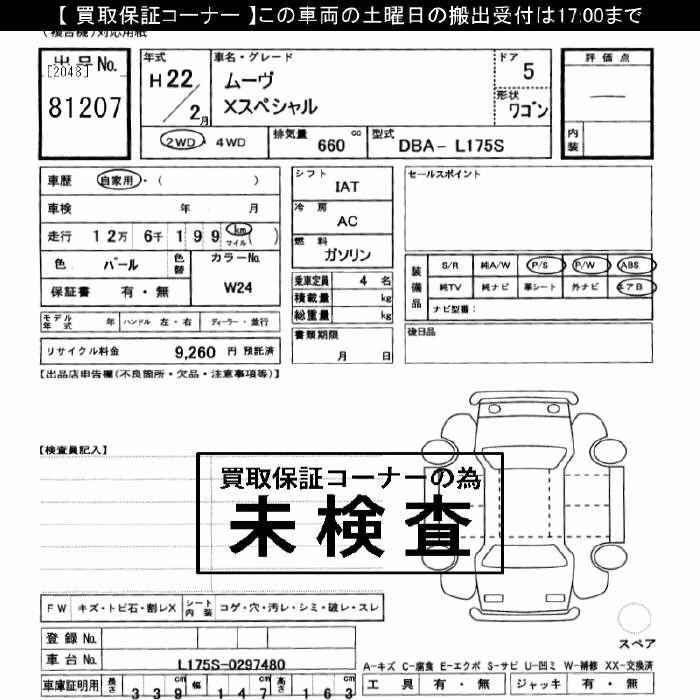 【 買取保証コーナー 】この車両の土曜日の搬出受付は17:00まで
(複合機)対応用紙
出品No.
[2048]
81207
年式
H22/2月
車名・グレード
ムーヴ
Xスペシャル
ドア
5
形状
ワゴン
2WD・4WD
排気量 660 cc
型式 DBA- L175S
評価点
内装
車歴 自家用・( )
車検 年 月
走行 12万 6千 199 km マイル ( )
色 パール
色替
カラーNo.
W24
保証書 有・無
モデル年式 年 ハンドル 左・右 ディーラー・並行
リサイクル料金 9,260 円 預託済
シフト
IAT
冷房
AC
燃料
ガソリン
乗車定員 4 名
積載量 kg
総重量 kg
書類期限
月 日
セールスポイント
装備品
S/R 純A/W P/S P/W ABS
純TV 純ナビ 革シート 外ナビ エアB
ナビ型番:
後日品
【出品店申告欄(不良箇所・欠品・注意事項等)】
【検査員記入】
買取保証コーナーの為
未検査
FW キズ・トビ石・割レX シート内装 コゲ・穴・汚レ・シミ・破レ・スレ
登録No.
車台No. L175S-0297480
車庫証明用 長さ 339 cm 幅 147 cm 高さ 163 cm
スペア
A-キズ C-腐食 E-エクボ S-サビ U-凹ミ W-補修 XX-交換済
工具 有・無 ジャッキ 有・無